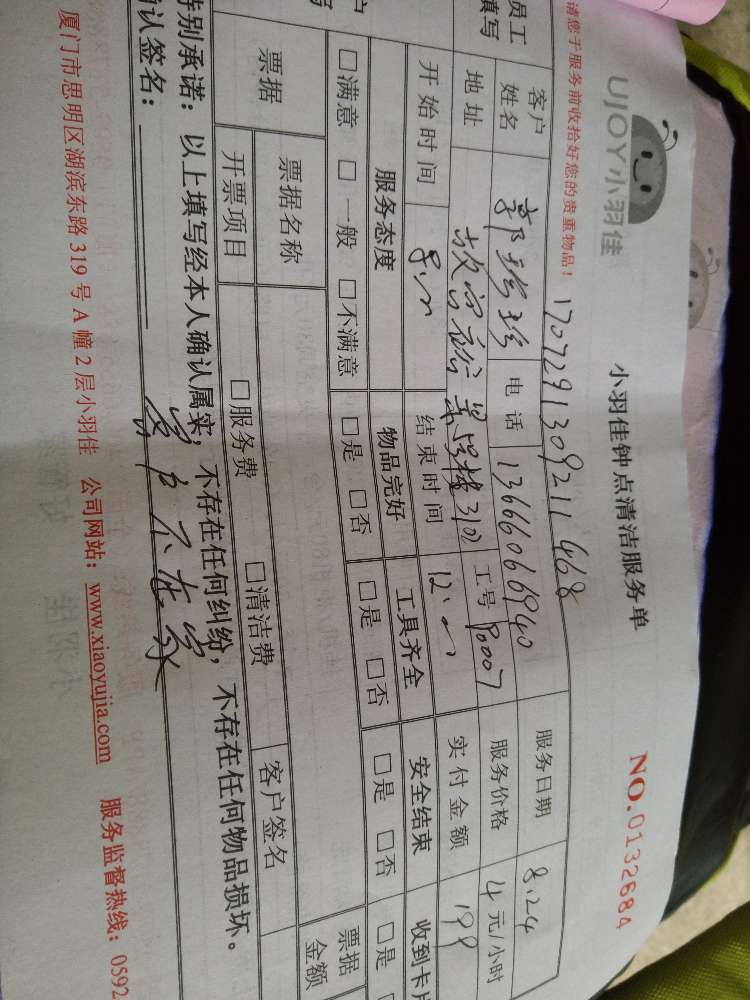 UJOY小羽佳
小羽佳钟点清洁服务单
NO.0132684
请您于服务前收拾好您的贵重物品！
17072913092111468
员工
填写
客户
姓名
郭珍珍
电话
13666066940
服务日期
8.24
地址
景
楼3102
工号
P0007
服务价格
4
元/小时
开始时间
结束时间
实付金额
199
服务态度
物品完好
工具齐全
安全结束
收到卡片
□满意 □一般 □不满意
□是 □否
□是 □否
□是 □否
□是
票据
票据名称
客户签名
票据
金额
开票项目
□服务费
□清洁费
特别承诺：以上填写经本人确认属实，不存在任何纠纷，不存在任何物品损坏。
确认签名：
客户不在家
厦门市思明区湖滨东路319号A幢2层小羽佳 公司网站：www.xiaoyujia.com 服务监督热线：0592